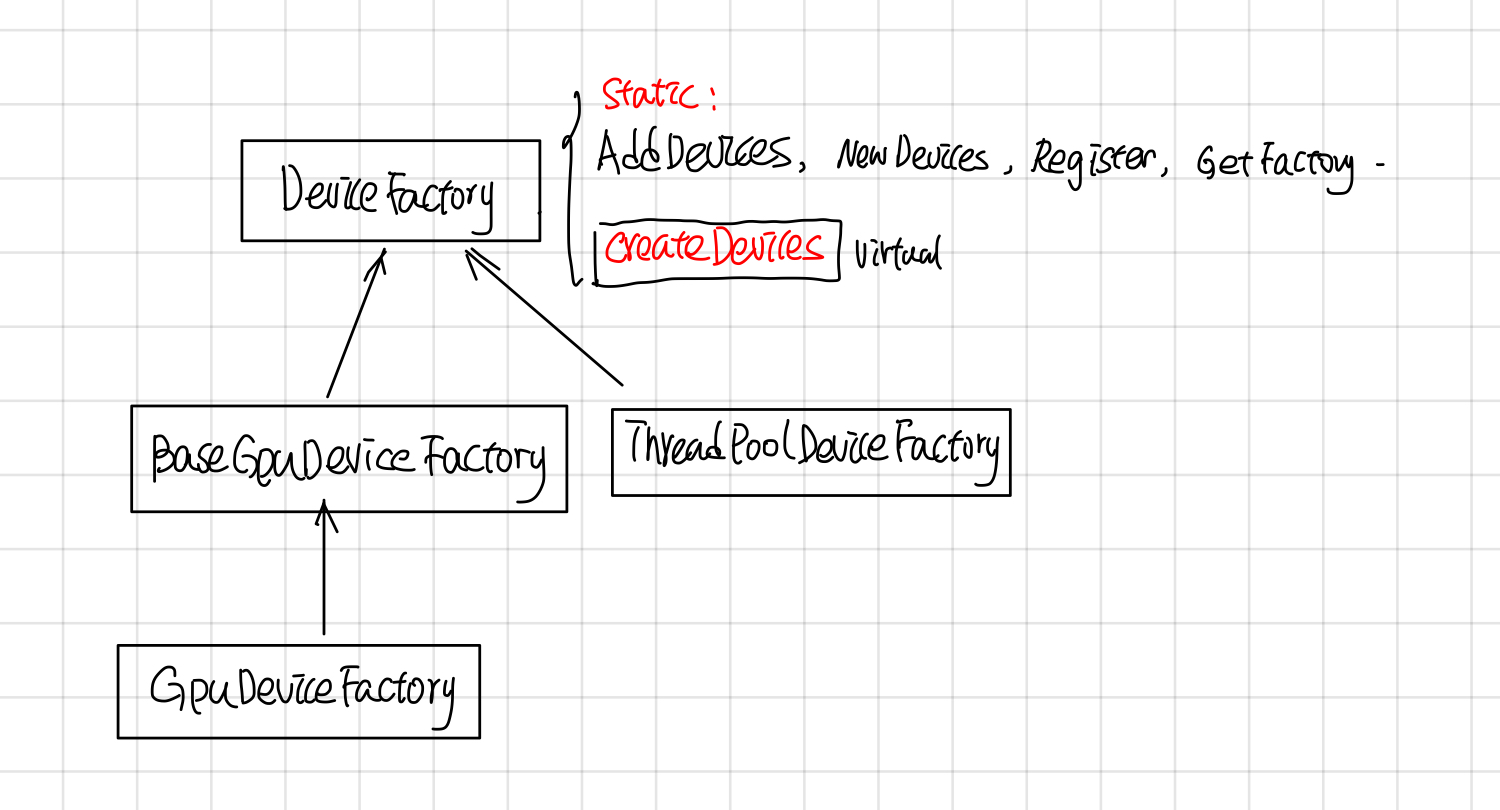 Static:
AddDevices, NewDevices, Register, GetFactory -
DeviceFactory
CreateDevices virtual
BaseGpuDeviceFactory
ThreadPoolDeviceFactory
GpuDeviceFactory